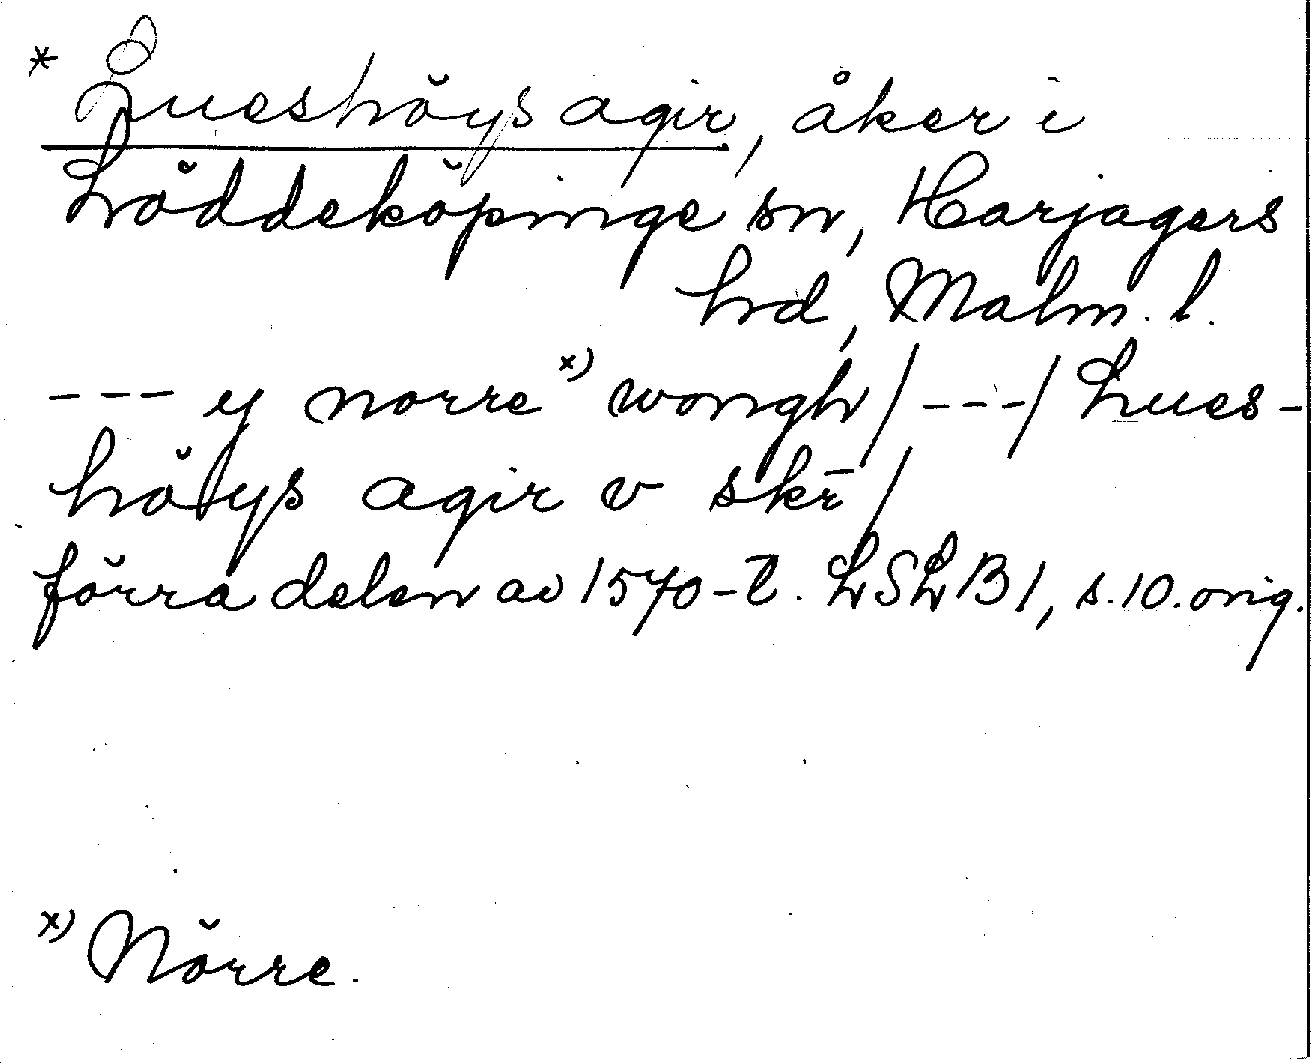 * Lueshöys agir, åker i
Löddeköpinge sn, Harjagers
hrd, Malm. l.
--- y norre x) wongh/---/Lues-
höys agir v skr̄/
förra delen av 1570-t. LSLB1, s.10. orig.
x) Nörre.